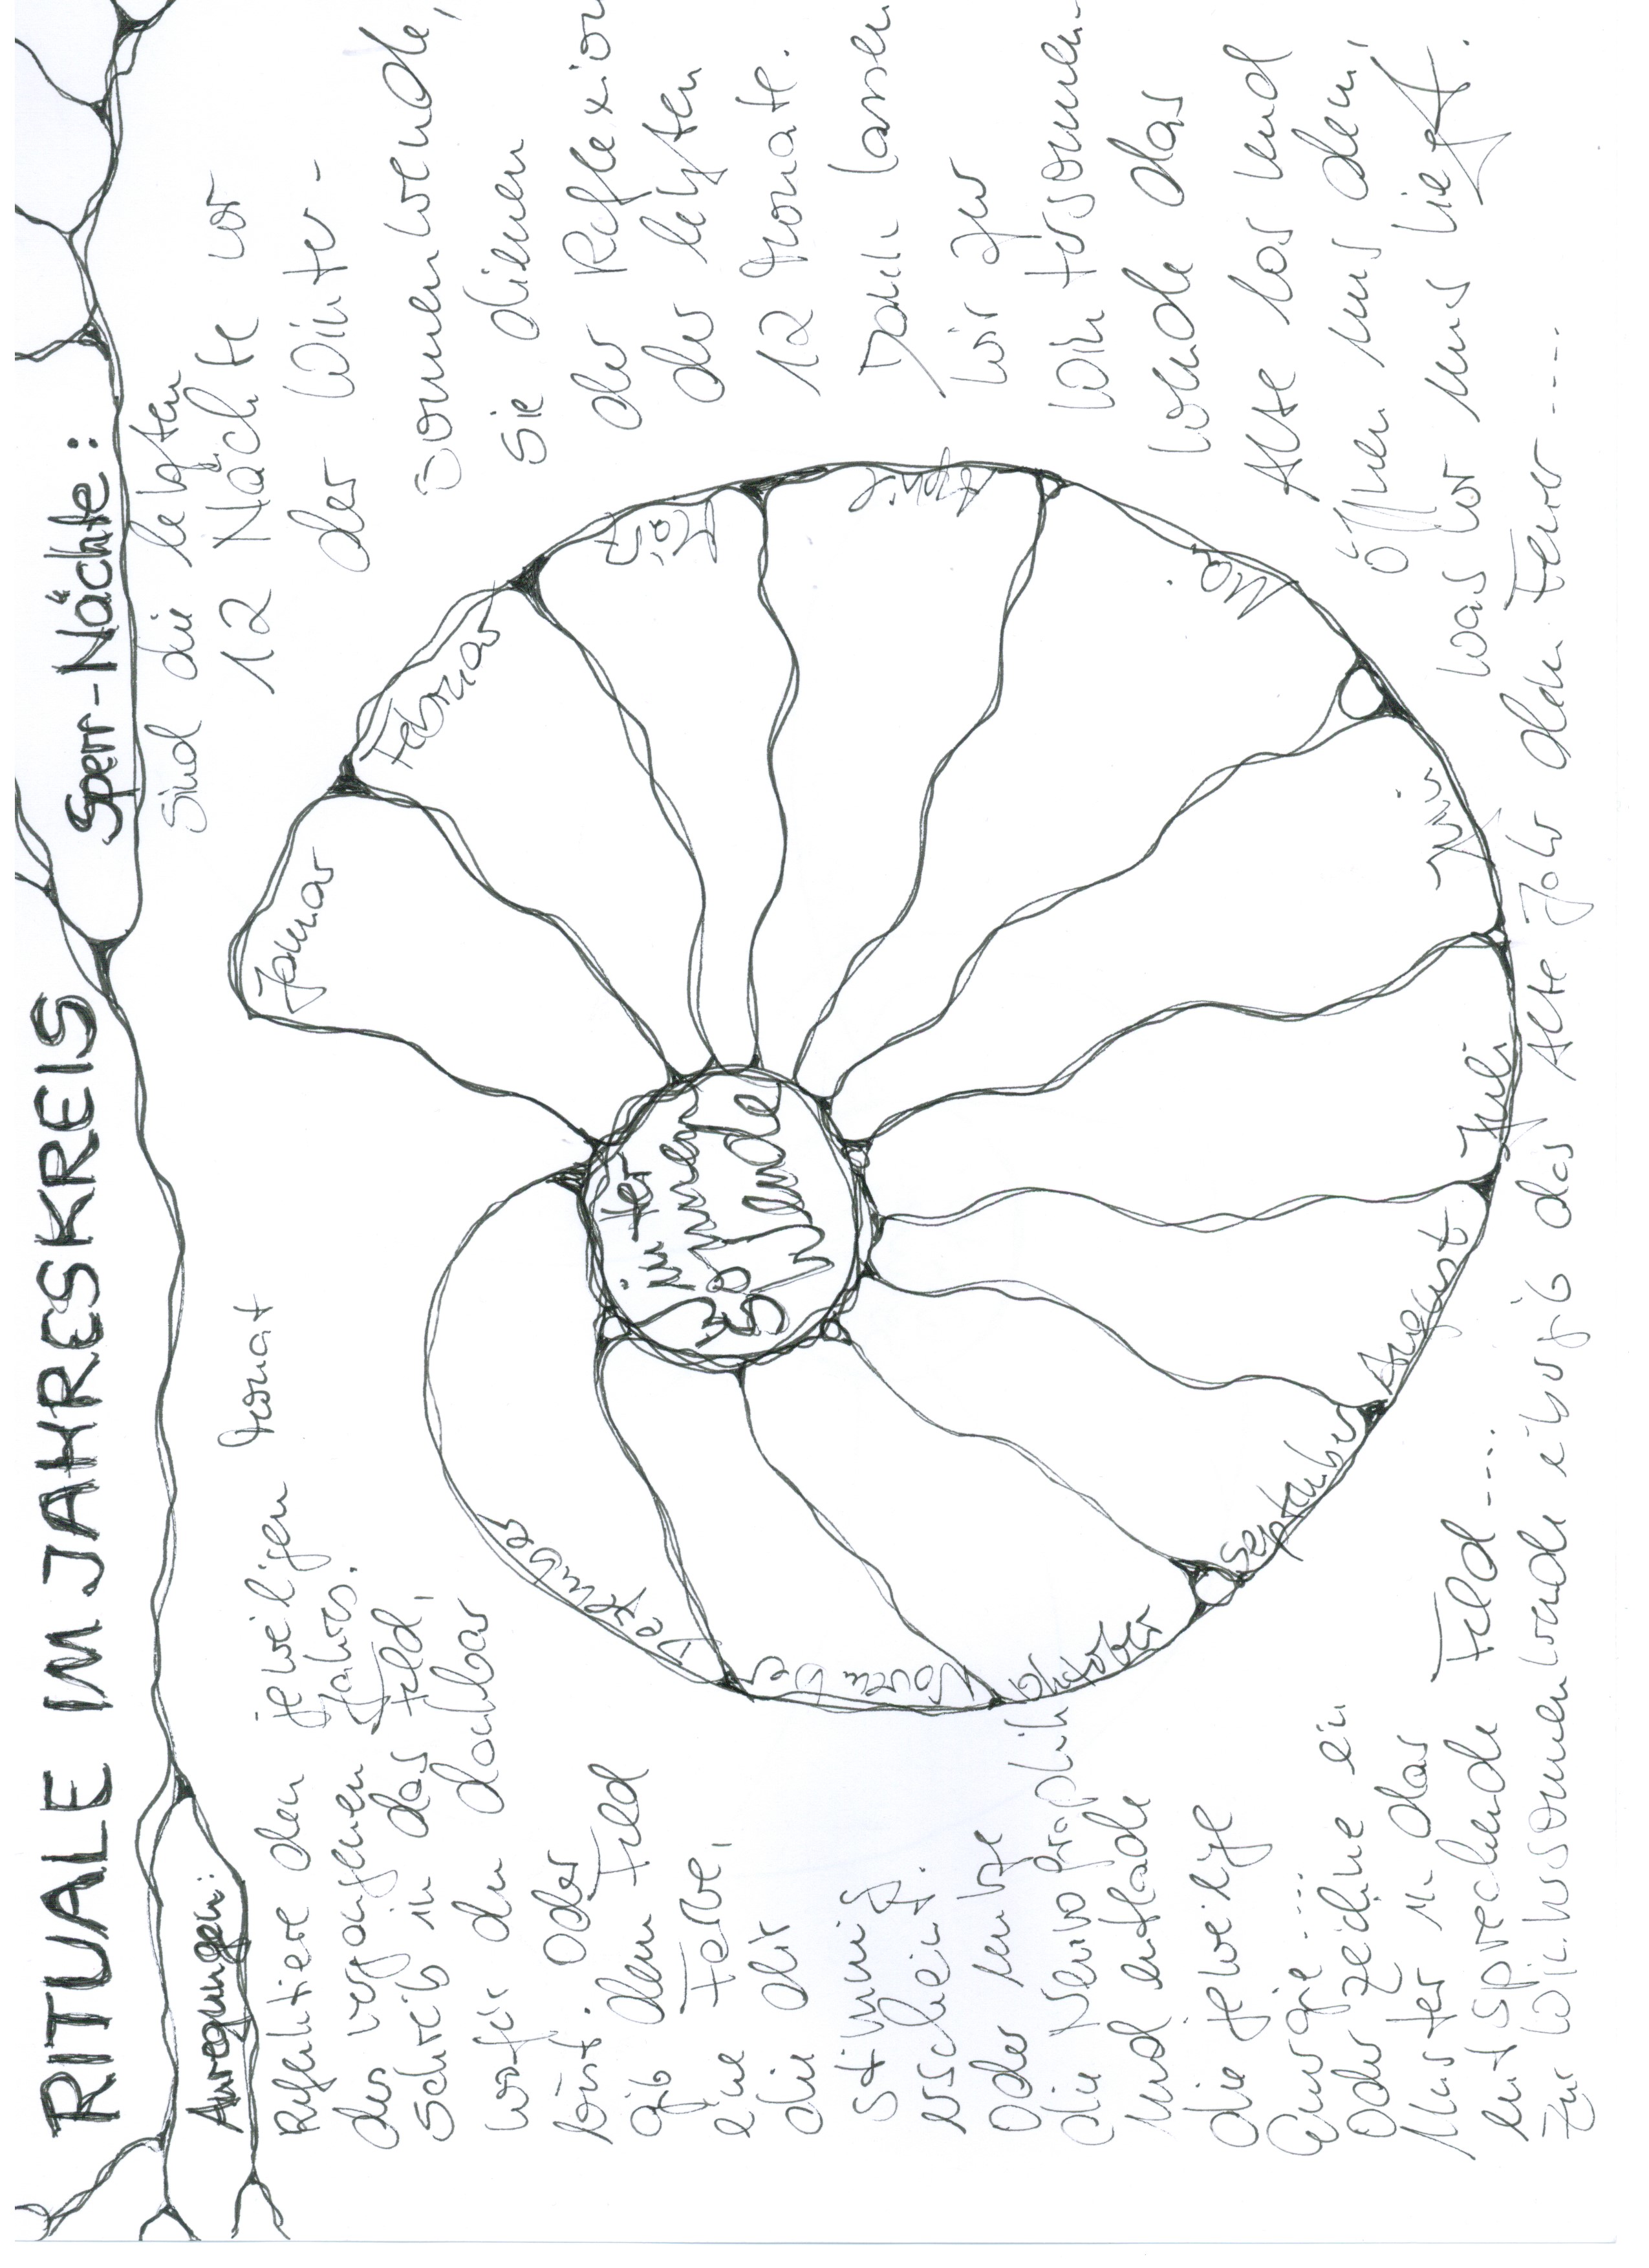 RITUALE IM JAHRESKREIS
Anregungen:
Reflektiere den jeweiligen Monat
des vergangenen Jahres.
Schreib in das Feld,
wofür du dankbar
bist. Oder
gib dem Feld
eine Farbe,
die dir
stimmig
erscheint.
Oder nutze
die Neurographik
und entlade
die jeweilige
Energie....
Oder zeichne ein
Muster in das
entsprechende Feld....
Zur Wi.nsonnenwende übergib das Alte Jahr dem Feuer....
Sperr-Nächte:
Sind die letzten
12 Nächte vor
der Winter-
sonnenwende,
Sie dienen
der Reflexion
der letzten
12 Monate.
Dann lassen
wir zur
Wintersonnen-
wende das
Alte los und
öffnen uns dem,
was vor uns liegt.
Januar
Februar
März
April
Mai
Juni
Juli
August
September
Oktober
November
Dezember
Winter
Sonnen
Wende